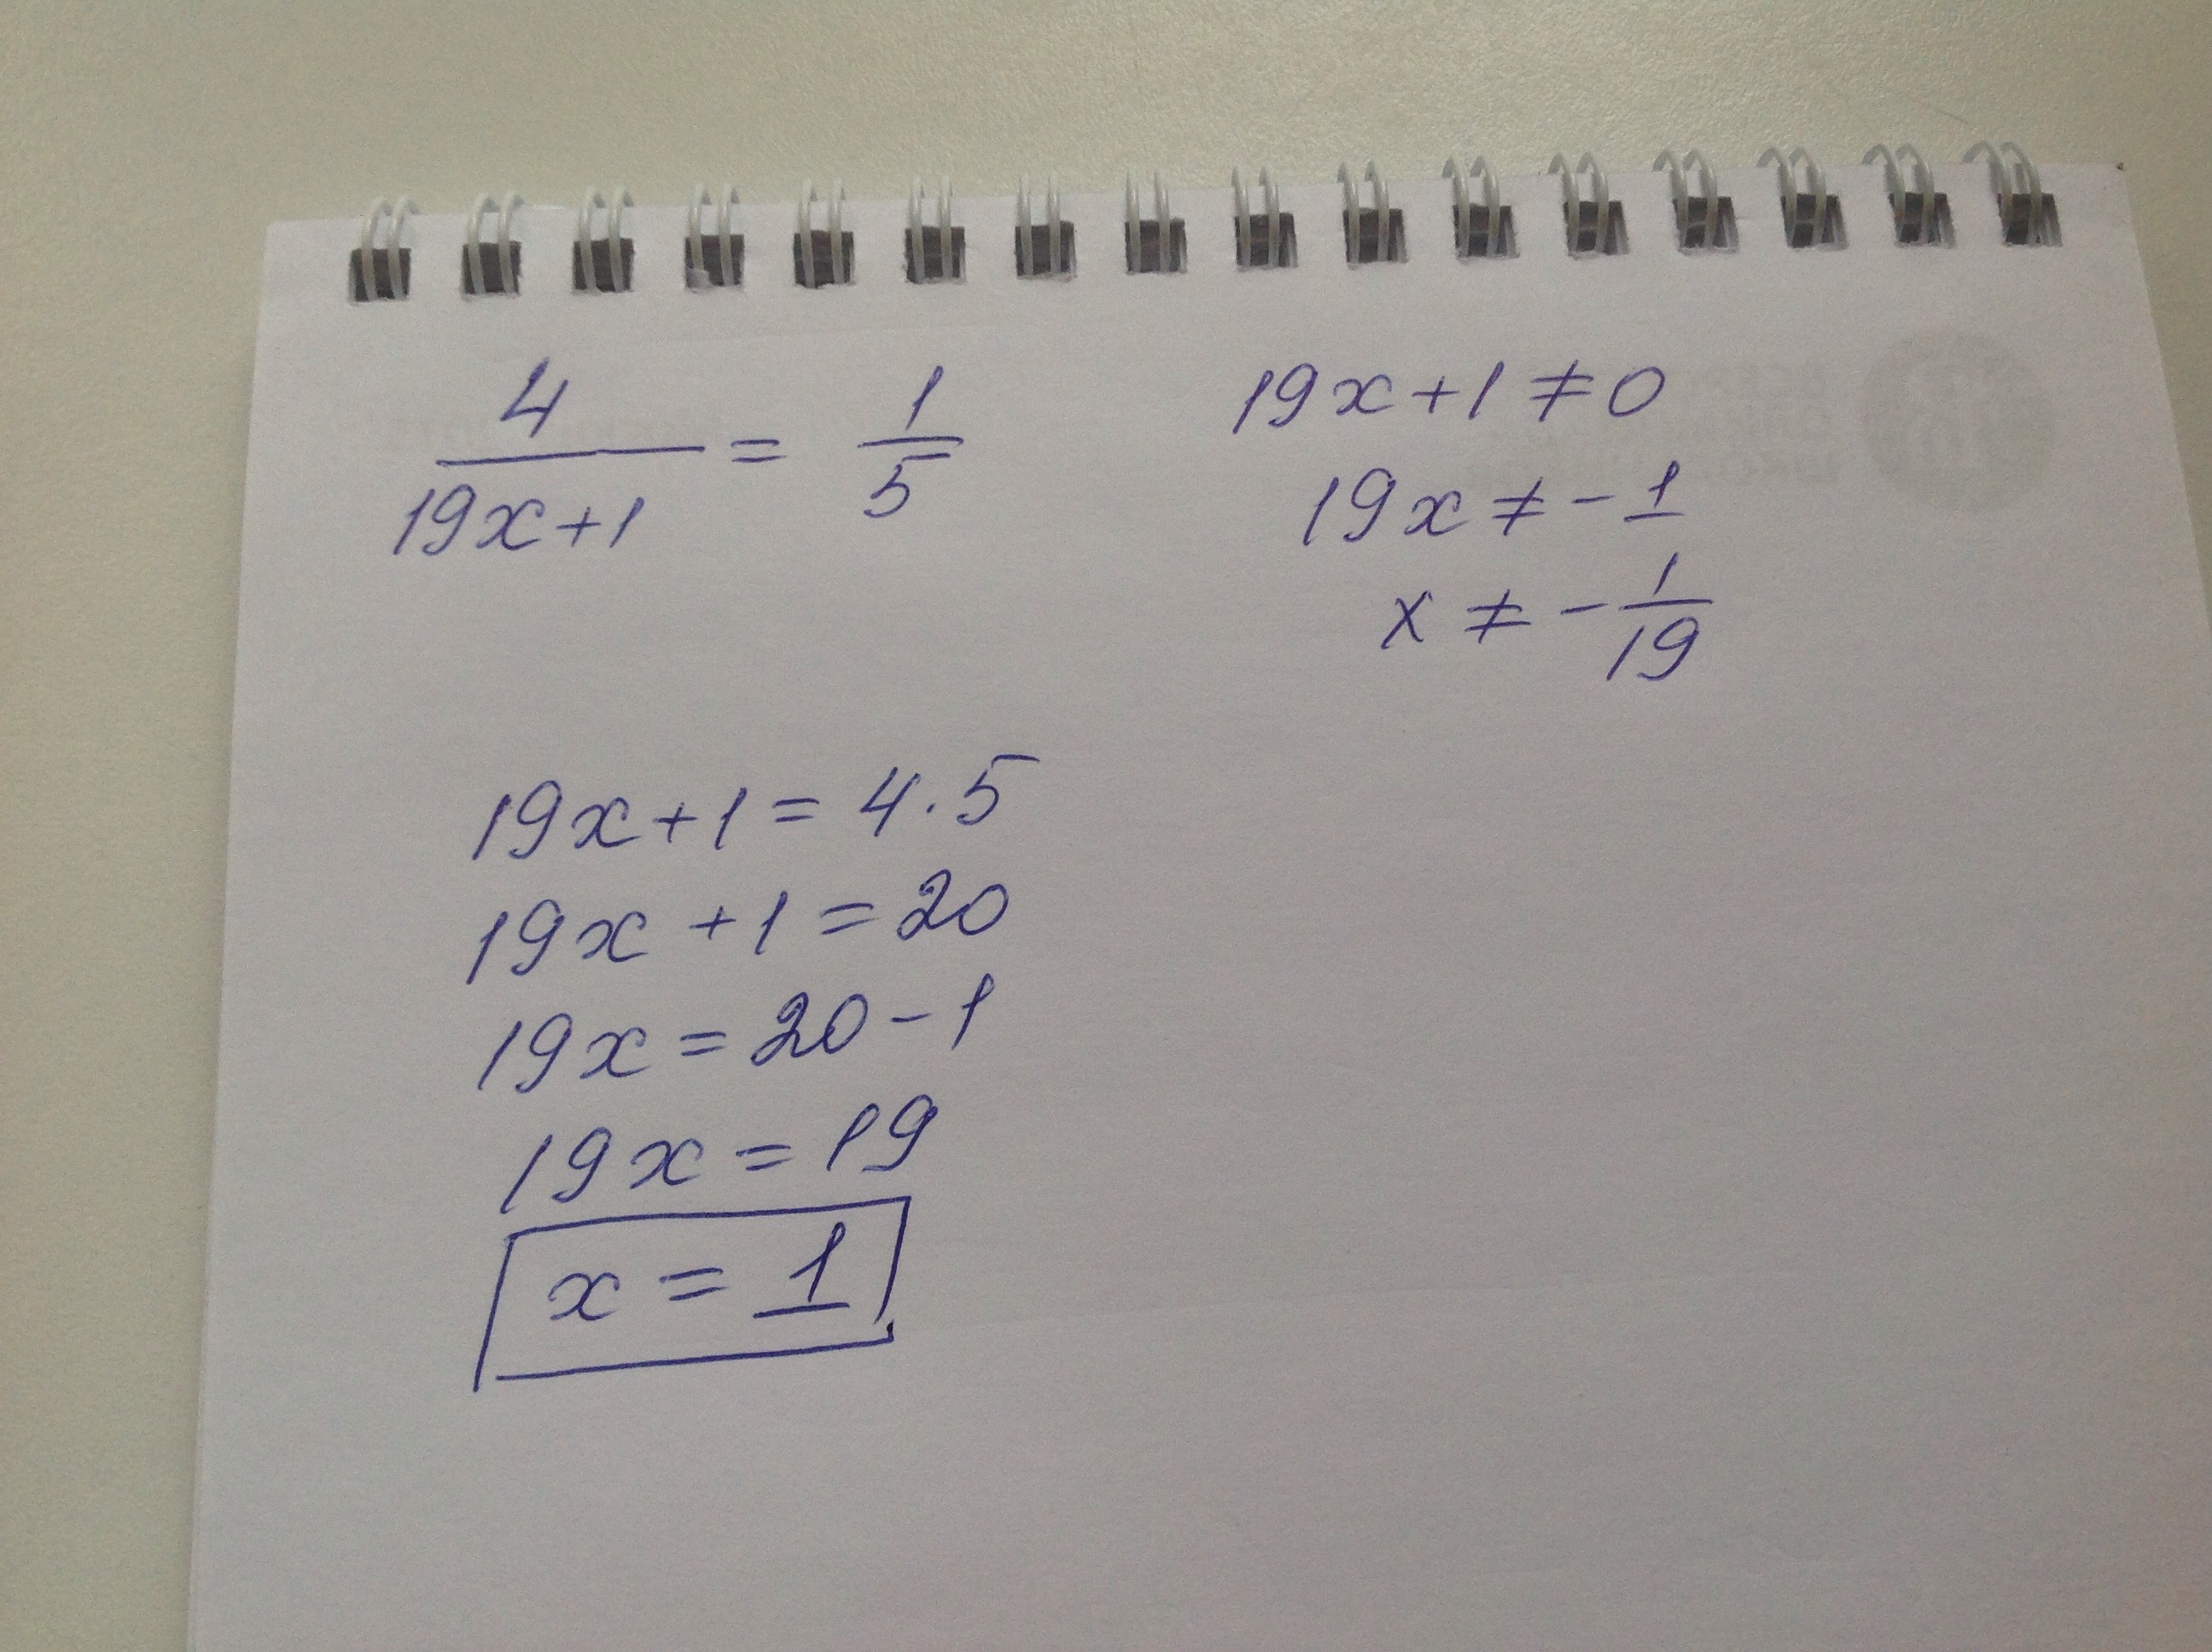 4/(19x+1) = 1/5
19x+1≠0
19x≠-1
x≠-1/19
19x+1=4·5
19x+1=20
19x=20-1
19x=19
x=1